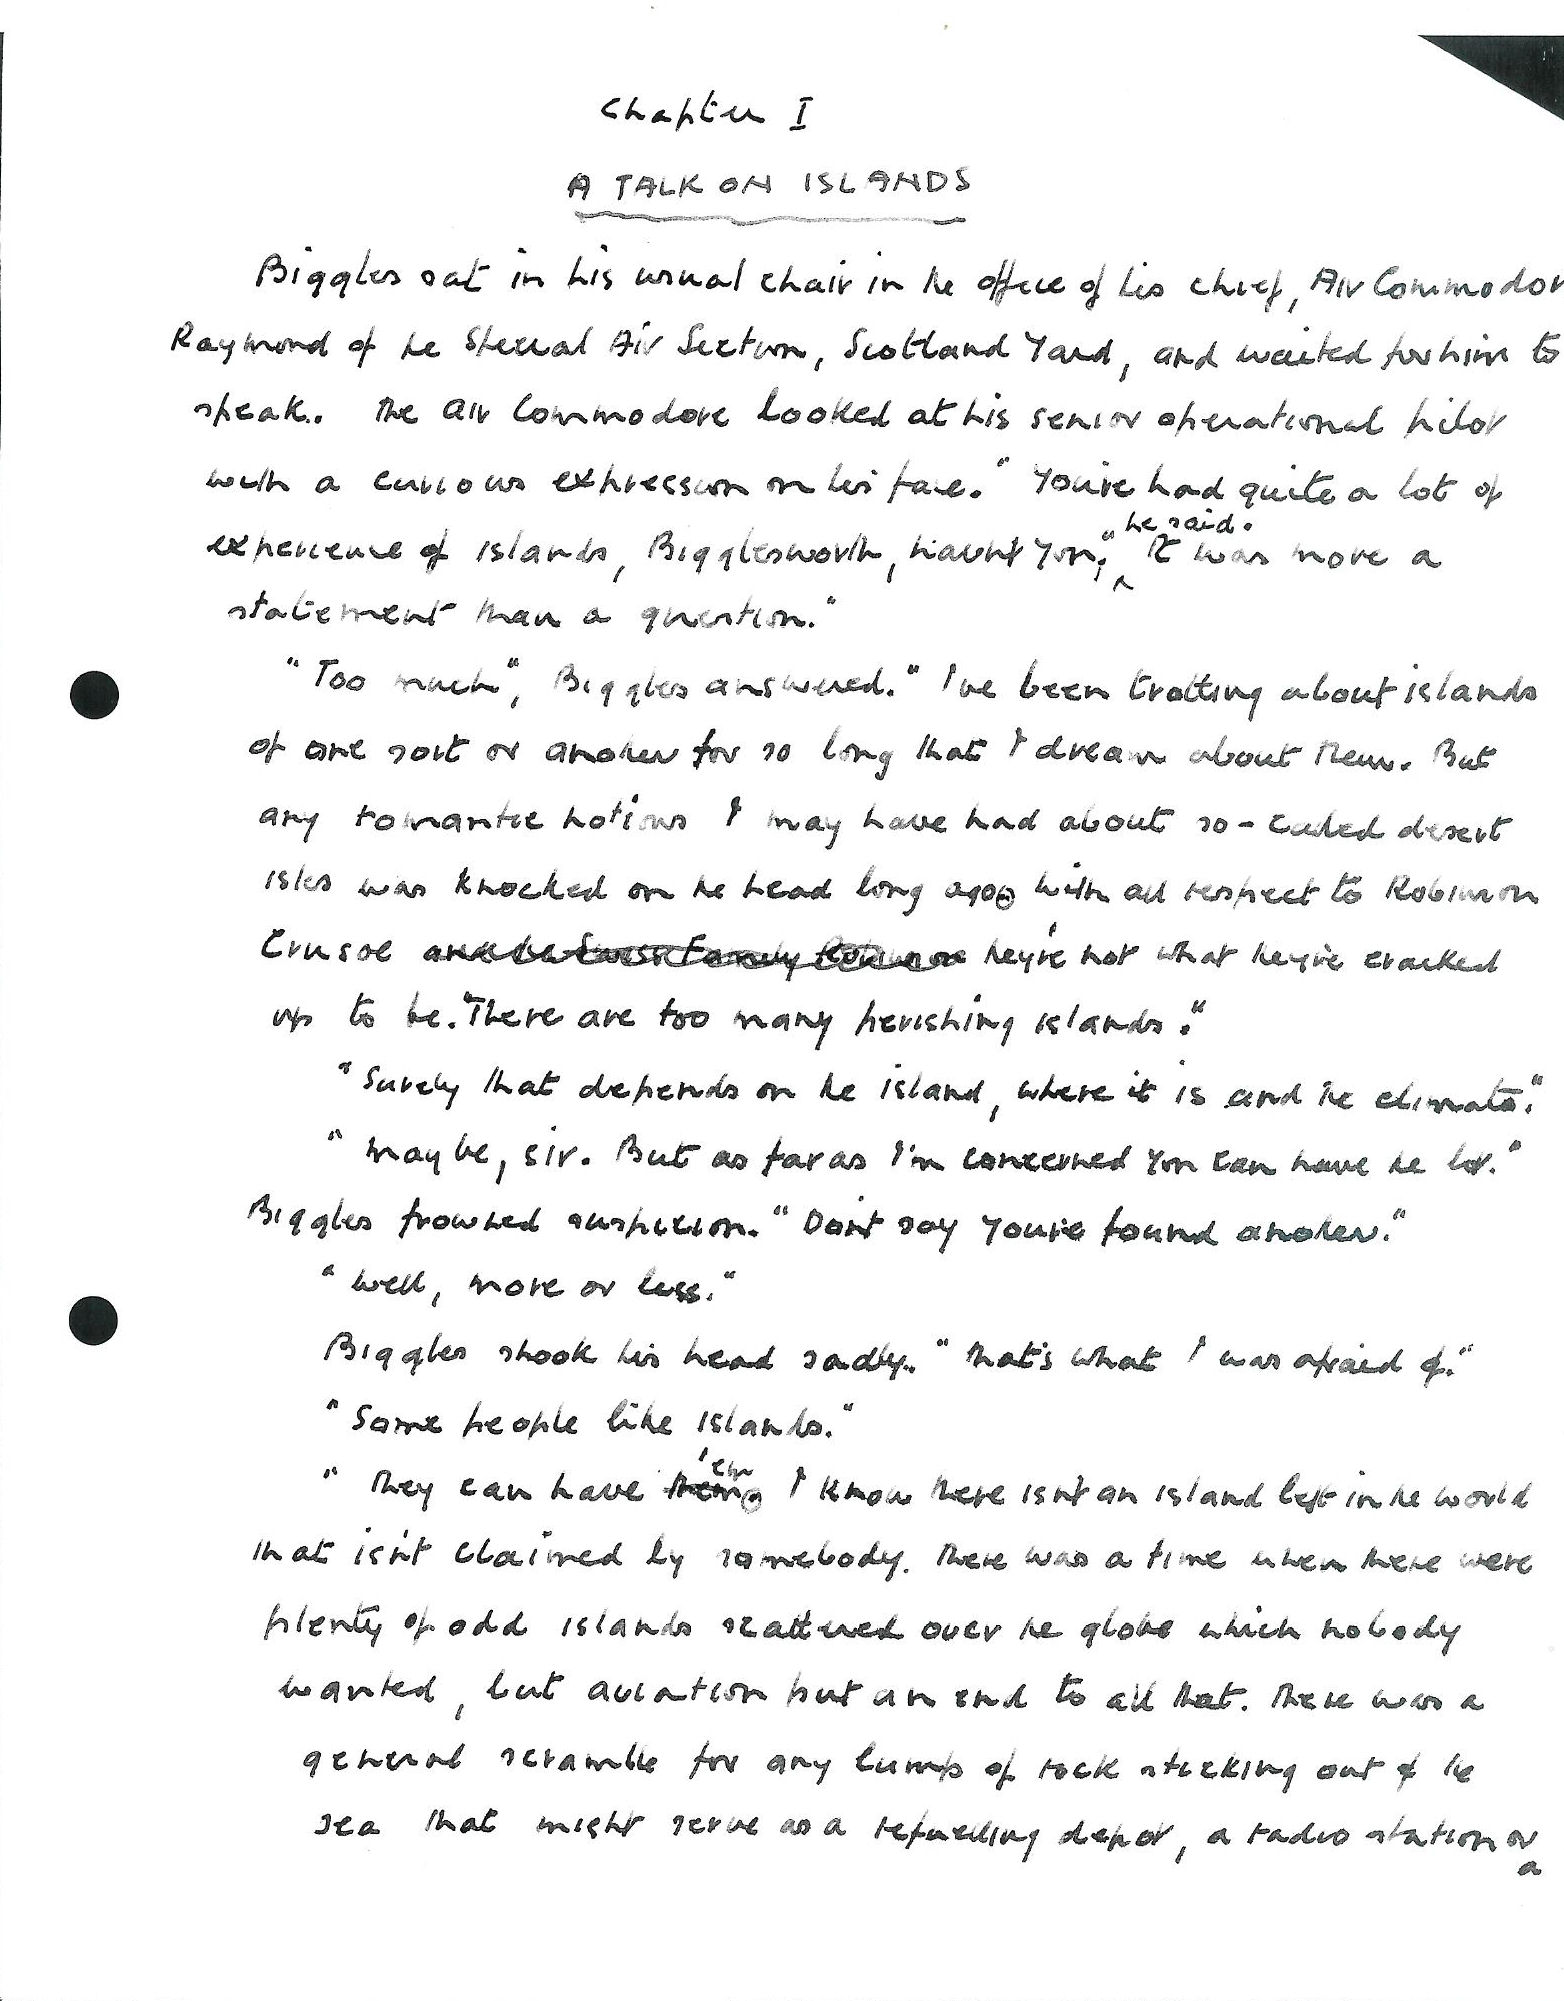 Chapter I
A TALK ON ISLANDS
Biggles sat in his usual chair in he office of his chief, Air Commodor
Raymond of he Special Air Section, Scotland Yard, and waited for him to
speak.. The Air Commodore looked at his senior operational pilot
with a curious expression on his face. "You've had quite a lot of
he said.
experience of islands, Bigglesworth, havn't you," It was more a
statement than a question."
"Too much", Biggles answered. "I've been trotting about islands
of one sort or anoher for so long that I dream about them. But
any romantic notions I may have had about so-called desert
isles was knocked on he head long ago. With all respect to Robinson
Crusoe and he Swiss Family Robinson hey're not what hey're cracked
up to be. "There are too many perishing islands."
"Surely that depends on he island, where it is and he climate."
"Maybe, sir. But as far as I'm concerned you can have he lot."
Biggles frowned suspicion. "Don't say you've found anoher."
"Well, more or less."
Biggles shook his head sadly.. "That's what I was afraid of."
"Some people like islands."
'em
"They can have them. I know there isn't an island left in he world
that isn't claimed by somebody. There was a time when there were
plenty of odd islands scattered over he globe which nobody
wanted, but aviation put an end to all that. There was a
general scramble for any lump of rock sticking out of he
sea that might serve as a refuelling depot, a radio station or
a